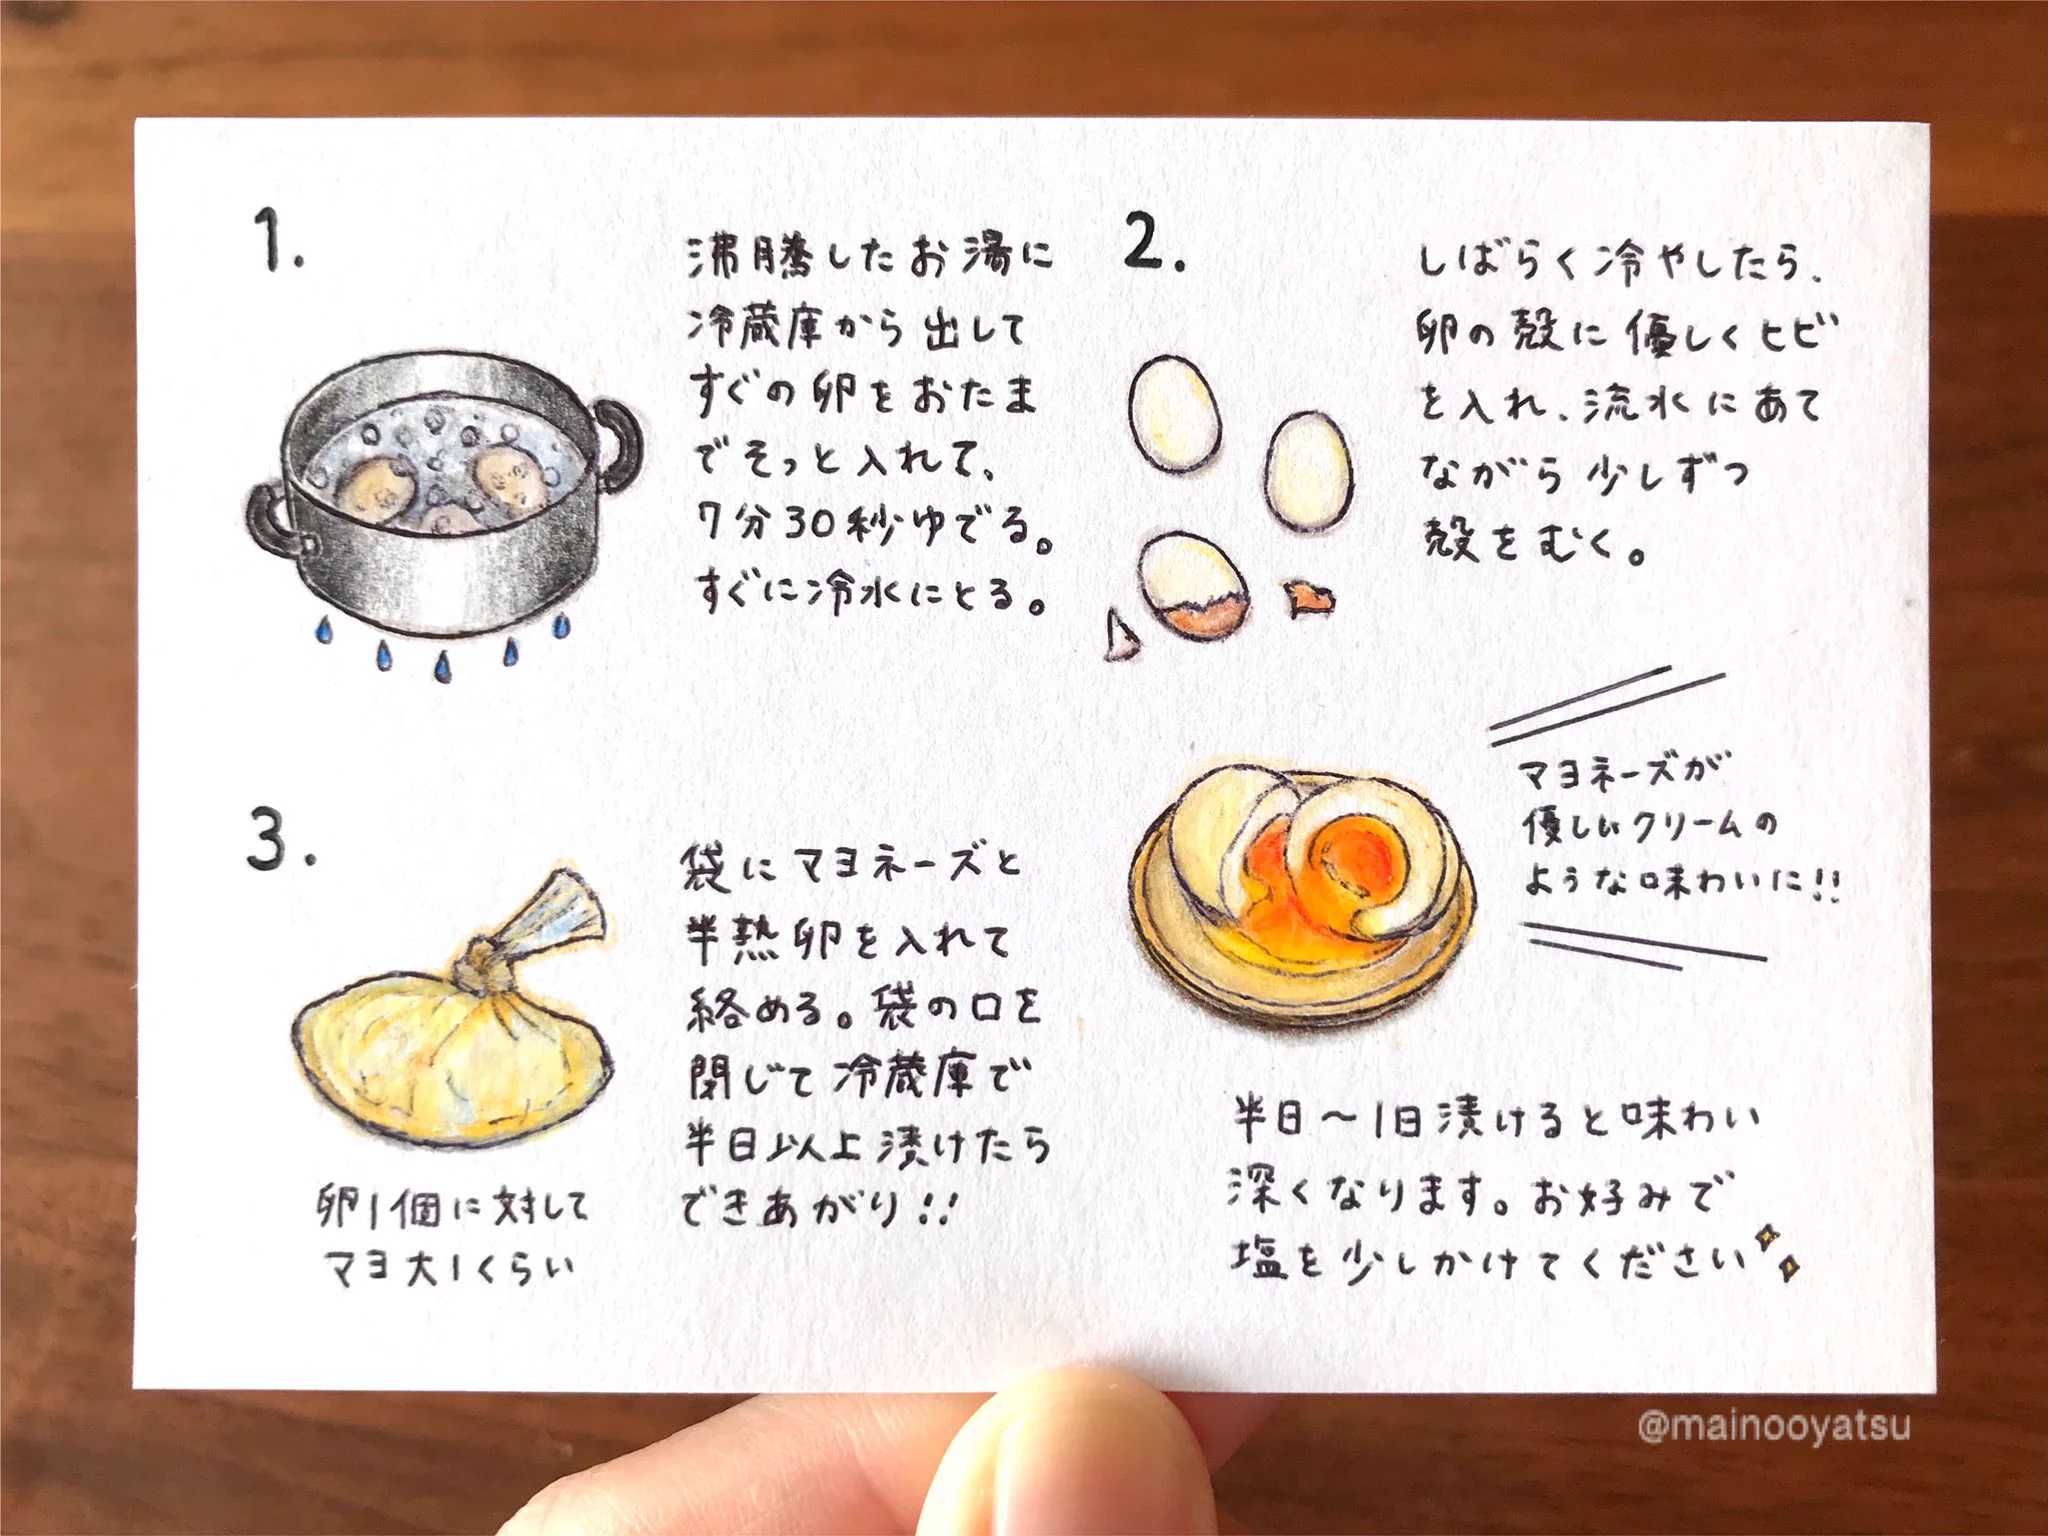 1.
沸騰したお湯に
冷蔵庫から出して
すぐの卵をおたま
でそっと入れて、
7分30秒ゆでる。
すぐに冷水にとる。
2.
しばらく冷やしたら、
卵の殻に優しくヒビ
を入れ、流水にあて
ながら少しずつ
殻をむく。
3.
袋にマヨネーズと
半熟卵を入れて
絡める。袋の口を
閉じて冷蔵庫で
半日以上漬けたら
できあがり!!
卵1個に対して
マヨ大1くらい
マヨネーズが
優しいクリームの
ような味わいに!!
半日〜1日漬けると味わい
深くなります。お好みで
塩を少しかけてください
@mainooyatsu